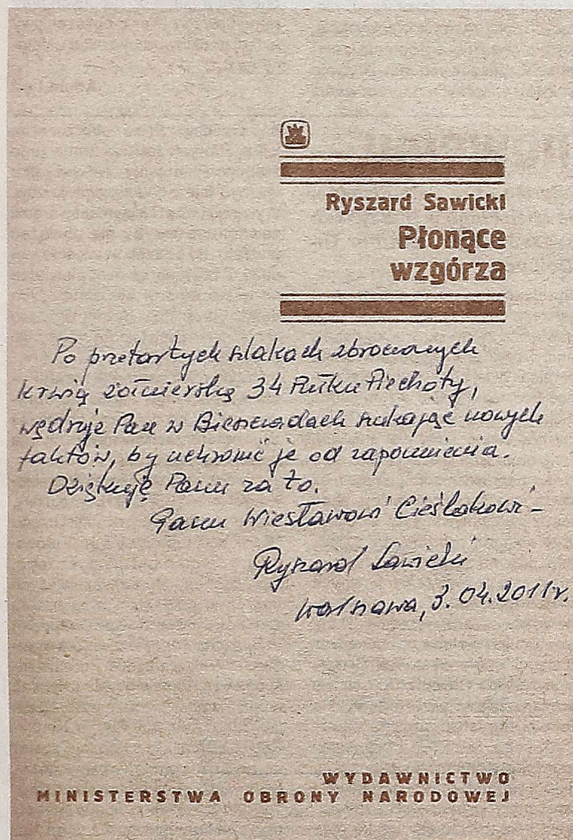 Ryszard Sawicki
Płonące
wzgórza
Po przetartych szlakach zbroczonych
krwią żołnierską 34 Pułku Piechoty,
wędruje Pan w Bieszczadach szukając nowych
faktów, by uchronić je od zapomnienia.
Dziękuję Panu za to.
Panu Wiesławowi Cieślakowi –
Ryszard Sawicki
Warszawa, 3.04.2011r.
WYDAWNICTWO
MINISTERSTWA OBRONY NARODOWEJ